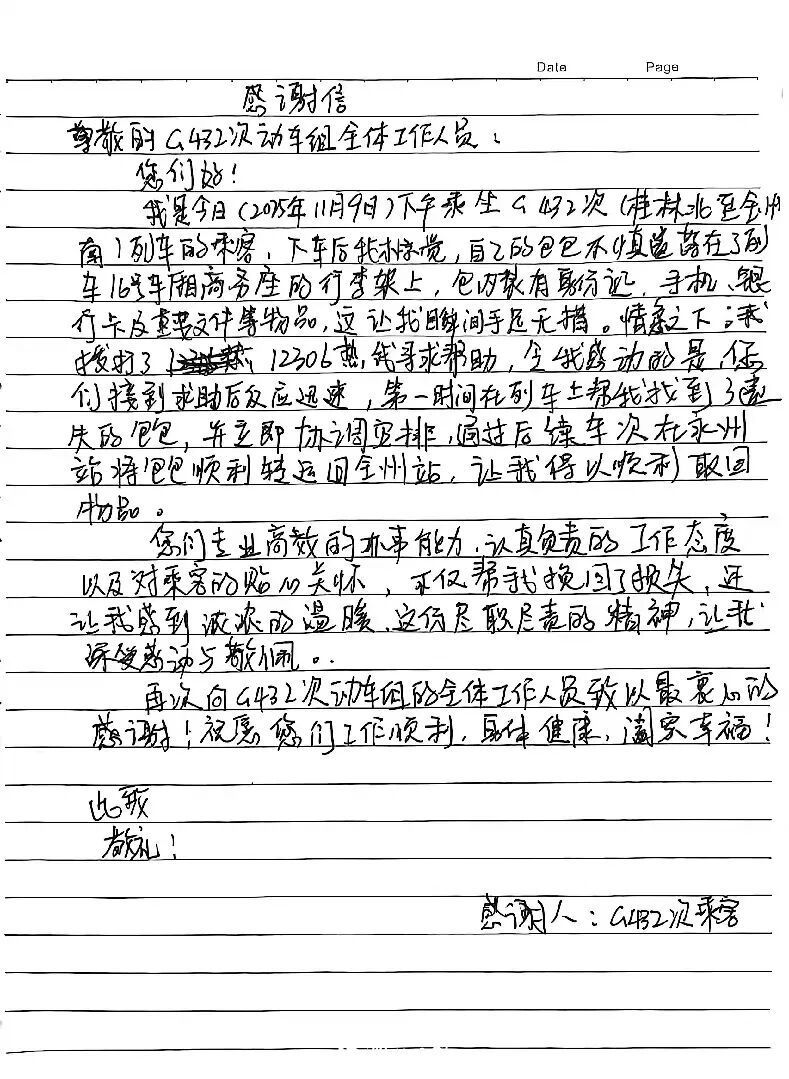 Date Page
感谢信
尊敬的G432次动车组全体工作人员：
您们好！
我是今日（2025年11月9日）下午乘坐G432次（桂林北至全州
南）列车的乘客，下车后我才惊觉，自己的包包不慎遗落在了列
车16号车厢商务座的行李架上，包内装有身份证、手机、银
行卡及重要文件等物品，这让我瞬间手足无措。情急之下，我
拨打了12306热线寻求帮助，令我感动的是，您
们接到求助后反应迅速，第一时间在列车上帮我找到了遗
失的包包，并立即协调安排，通过后续车次在永州
站将包包顺利转运回全州站，让我得以顺利取回
物品。
您们专业高效的办事能力、认真负责的工作态度
以及对乘客的贴心关怀，不仅帮我挽回了损失，还
让我感到浓浓的温暖，这份尽职尽责的精神，让我
深受感动与敬佩。
再次向G432次动车组的全体工作人员致以最衷心的
感谢！祝愿您们工作顺利，身体健康，阖家幸福！
此致
敬礼！
感谢人：G432次乘客